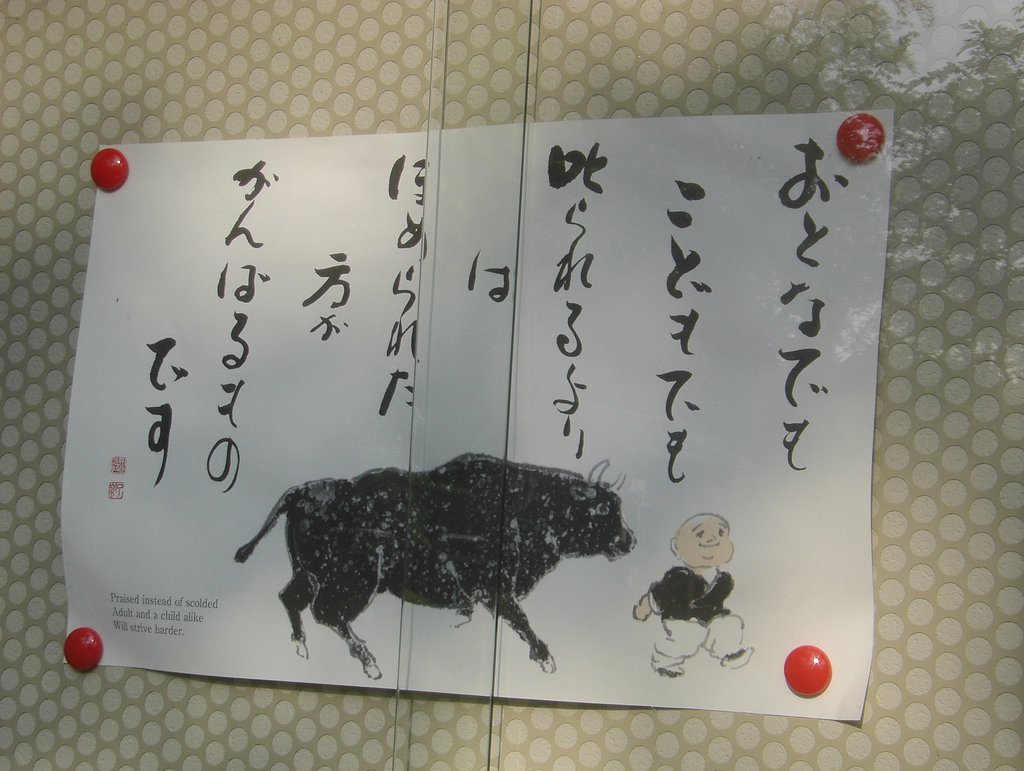 おとなでも
こどもでも
叱られるより
は
ほめられた
方が
がんばるもの
です
Praised instead of scolded
Adult and a child alike
Will strive harder.